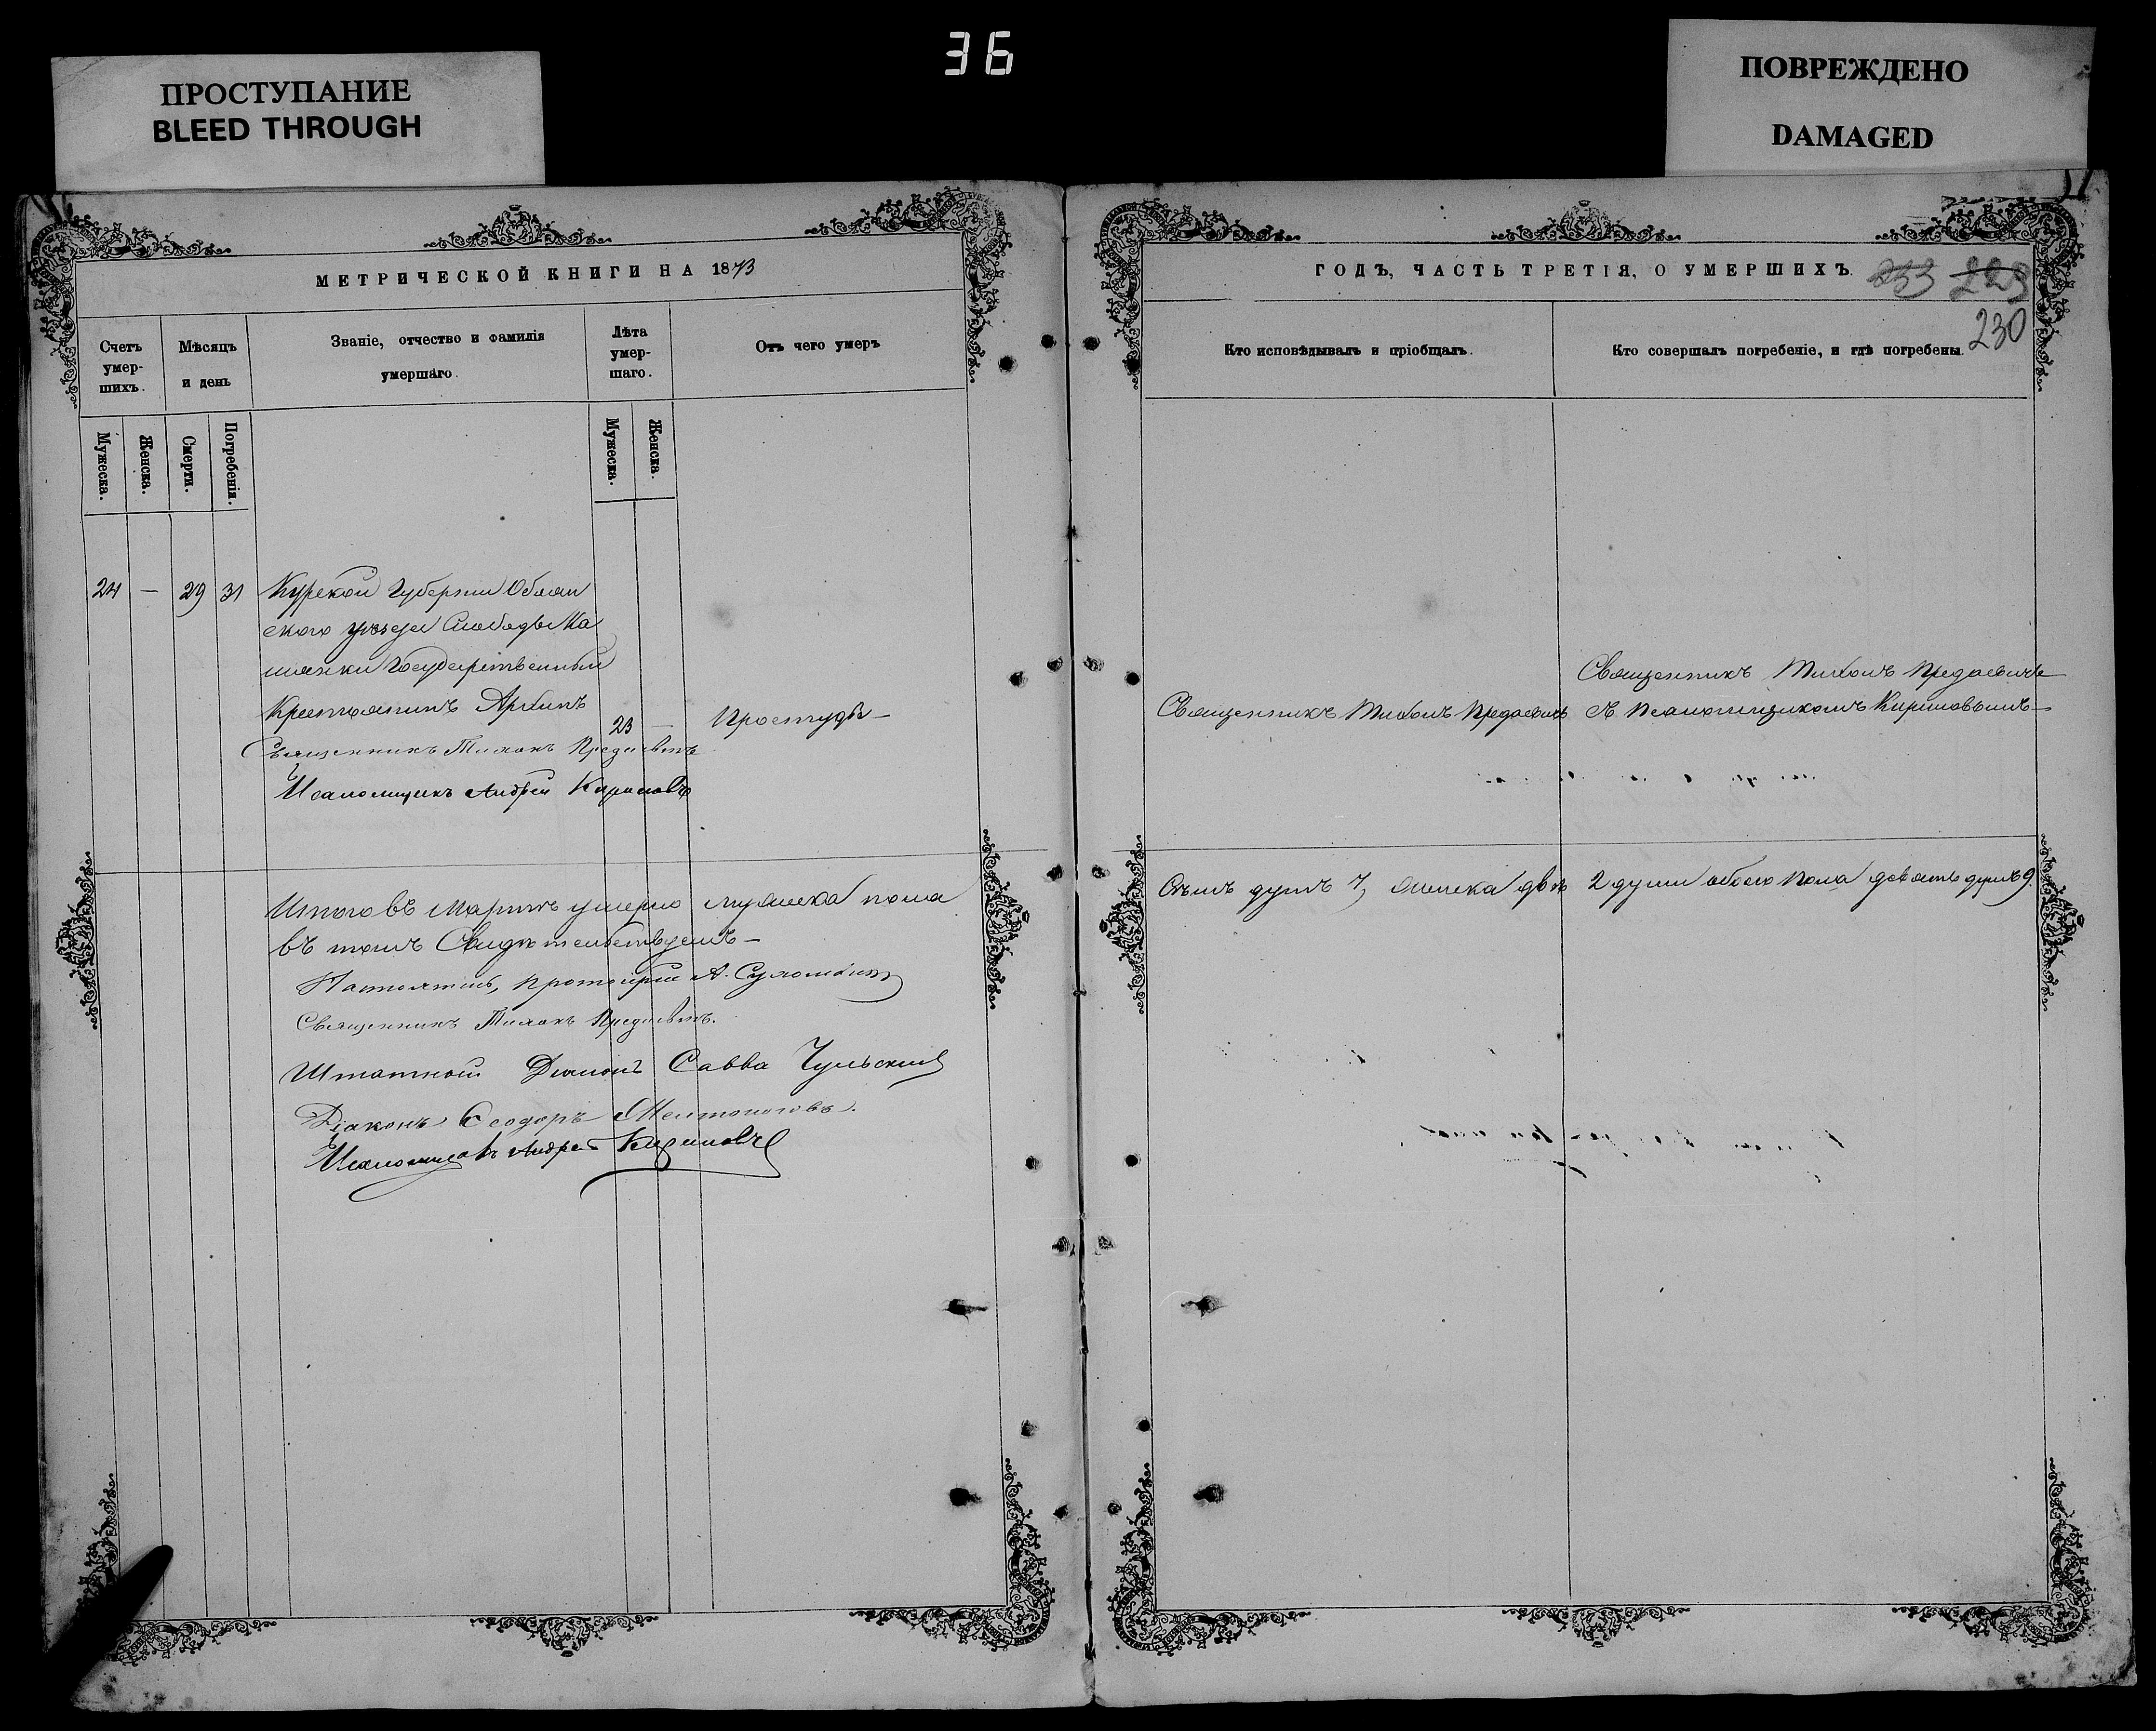 36
ПРОСТУПАНИЕ
BLEED THROUGH
ПОВРЕЖДЕНО
DAMAGED
МЕТРИЧЕСКОЙ КНИГИ НА 1873
Счетъ умер-шихъ.
Мѣсяцъ и день
Званіе, отчество и фамилія умершаго.
Лѣта умер-шаго.
Отъ чего умеръ
Мужеска.
Женска.
Смерти.
Погребенія.
Мужеска.
Женска.
24 — 29 31 Курской Губерніи Обоян
скаго уѣзда Слободы
Государственный
Крестьянинъ
23 — Простуды —
Священникъ Тихонъ
Псаломщикъ Андрей Кириловъ
Итого въ Мартѣ умерло мужеска пола
въ томъ Свидѣтельствуемъ —
Настоятель, Протоіерей А.
Священникъ Тихонъ
Штатный Діаконъ Савва Чульскій
Діаконъ Ѳеодоръ
Псаломщикъ Андрей Кириловъ
ГОДЪ, ЧАСТЬ ТРЕТІЯ, О УМЕРШИХЪ.
233 229
230
Кто исповѣдывалъ и пріобщалъ.
Кто совершалъ погребеніе, и гдѣ погребены.
Священникъ Тихонъ
Священникъ Тихонъ
съ Псаломщикомъ Кириловымъ —
Семь душъ 7, женска двѣ 2 души обоего пола девять душъ 9.